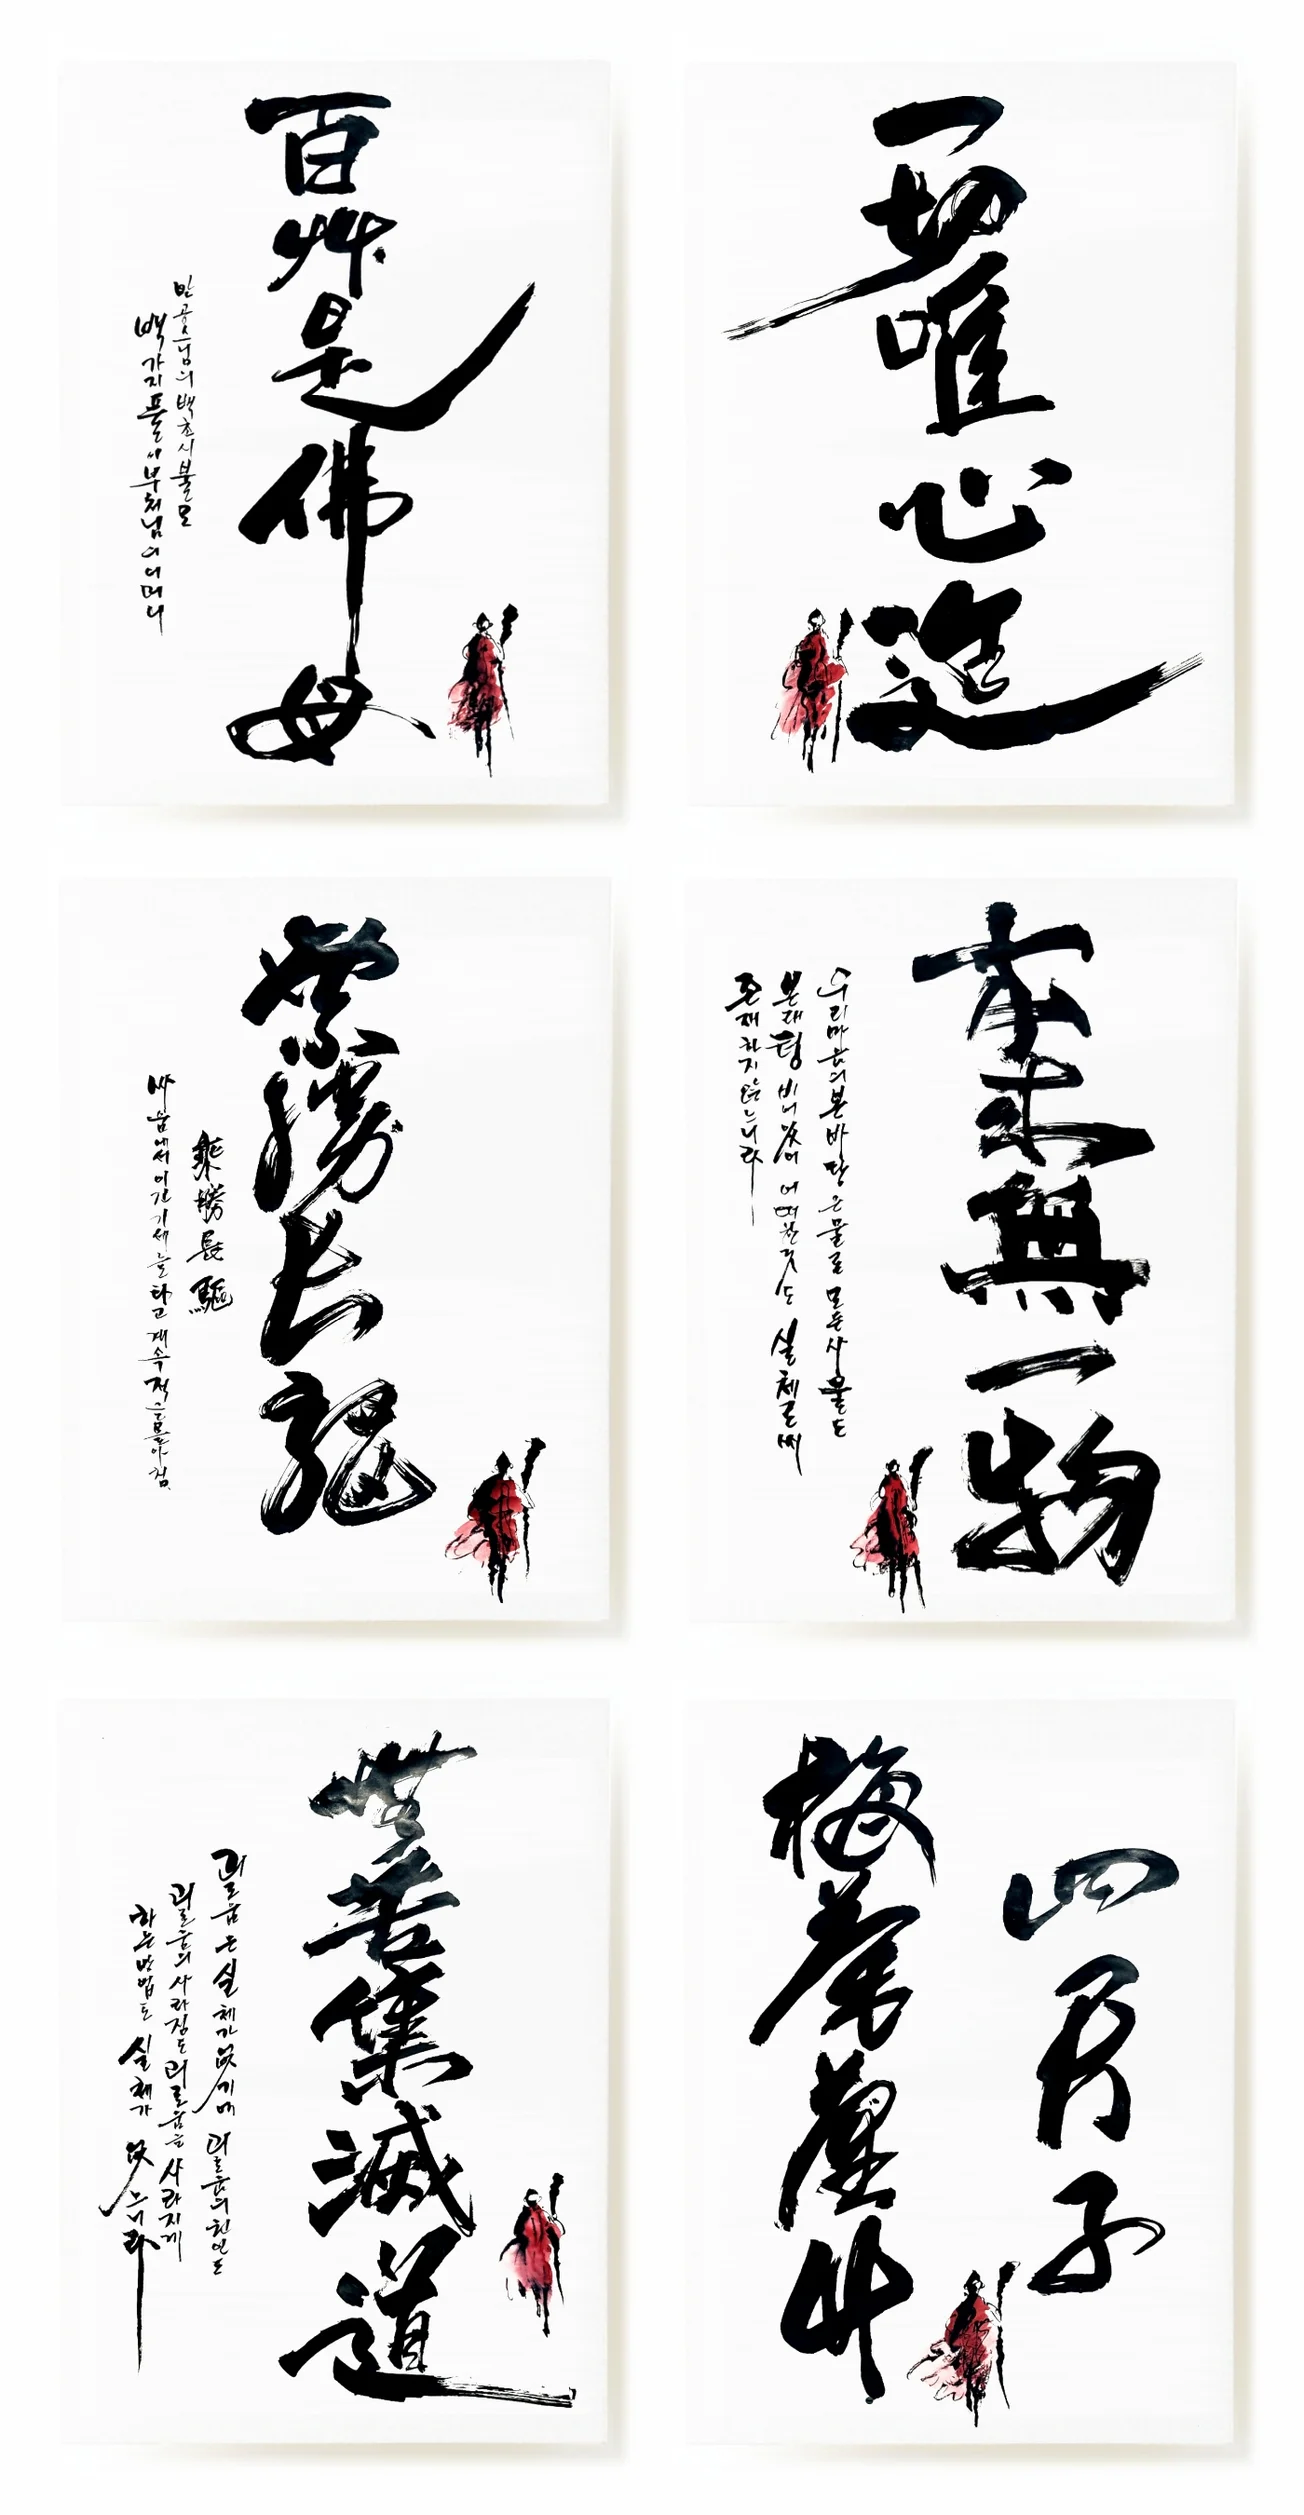 百艸是佛母
만공스님의 백초시불모
백가지 풀이 부처님의 어머니
一切唯心造
乘勝長驅
乘勝長驅
싸움에서 이긴 기세를 타고 계속 적을 몰아침.
本來無一物
우리 마음의 본바탕은 물론 모든 사물도
본래 텅 비어 있어 어떠한 것도 실체로써
존재하지 않느니라
無苦集滅道
괴로움은 실체가 없기에 괴로움의 원인도
괴로움의 사라짐도 괴로움을 사라지게
하는 방법도 실체가 없느니라
四君子
梅蘭菊竹